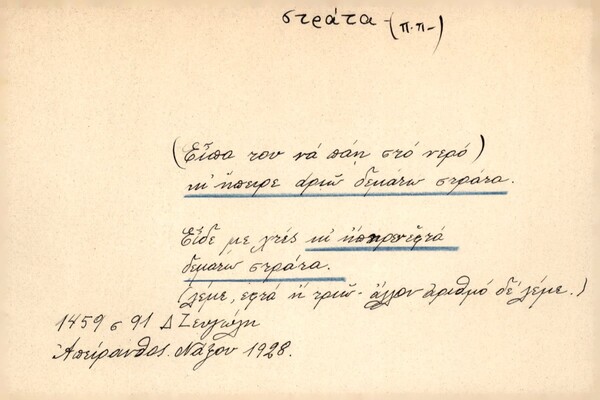 στράτα - (π.π-)
(Εἶπα του νά πάῃ στό νερό)
κι' ἤπειρε ἀριῶ δεμάτω στράτα.
Εἶδε με χτές κι' ἤπηρεν ἐφτά
δεματῶ στράτα.
(λέμε, ἑφτά ἤ τριῶ· ἄλλον ἀριθμό δέ λέμε.)
1459 σ 91 Δ Ζευγώλη
Ἀπείρανθος. Νάξου 1928.